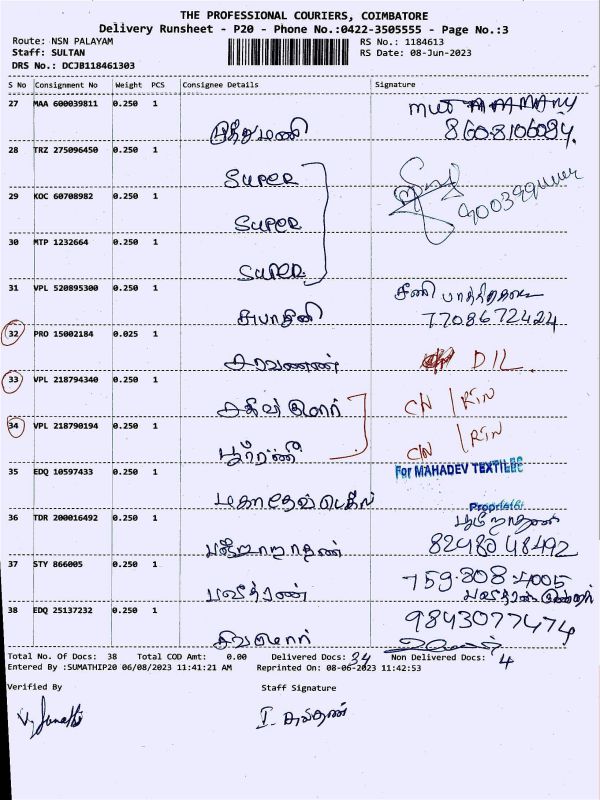 THE PROFESSIONAL COURIERS, COIMBATORE
Delivery Runsheet - P20 - Phone No.:0422-3505555 - Page No.:3
Route: NSN PALAYAM
Staff: SULTAN
DRS No.: DCJB118461303
RS No.: 1184613
RS Date: 08-Jun-2023
S No Consignment No Weight PCS Consignee Details Signature
27 MAA 600039811 0.250 1
முத்துமணி
8608106094.
28 TRZ 275096450 0.250 1
SUPER
29 KOC 60708982 0.250 1
SUPER
30 MTP 1232664 0.250 1
SUPER
31 VPL 520895300 0.250 1
சுபாதினி
7708672424
32 PRO 15002184 0.025 1
சரவணன்
D/L.
33 VPL 218794340 0.250 1
CN / RTN
34 VPL 218790194 0.250 1
CN / RTN
For MAHADEV TEXTILES
35 EDQ 10597433 0.250 1
Proprietor
36 TDR 200016492 0.250 1
37 STY 866005 0.250 1
பவித்ரன்
38 EDQ 25137232 0.250 1
9843077474
Total No. Of Docs: 38 Total COD Amt: 0.00 Delivered Docs: 34 Non Delivered Docs: 4
Entered By :SUMATHIP20 06/08/2023 11:41:21 AM Reprinted On: 08-06-2023 11:42:53
Verified By Staff Signature